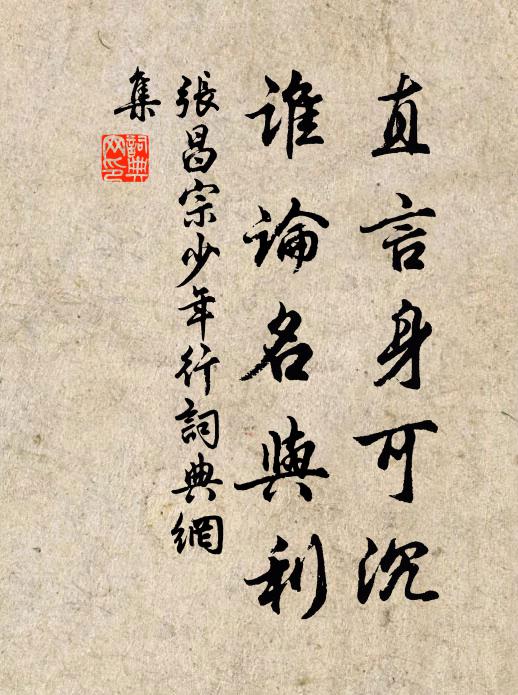 直言身可沉
誰論名與利
張昌宗少年行詞典網
集
詞典
网印